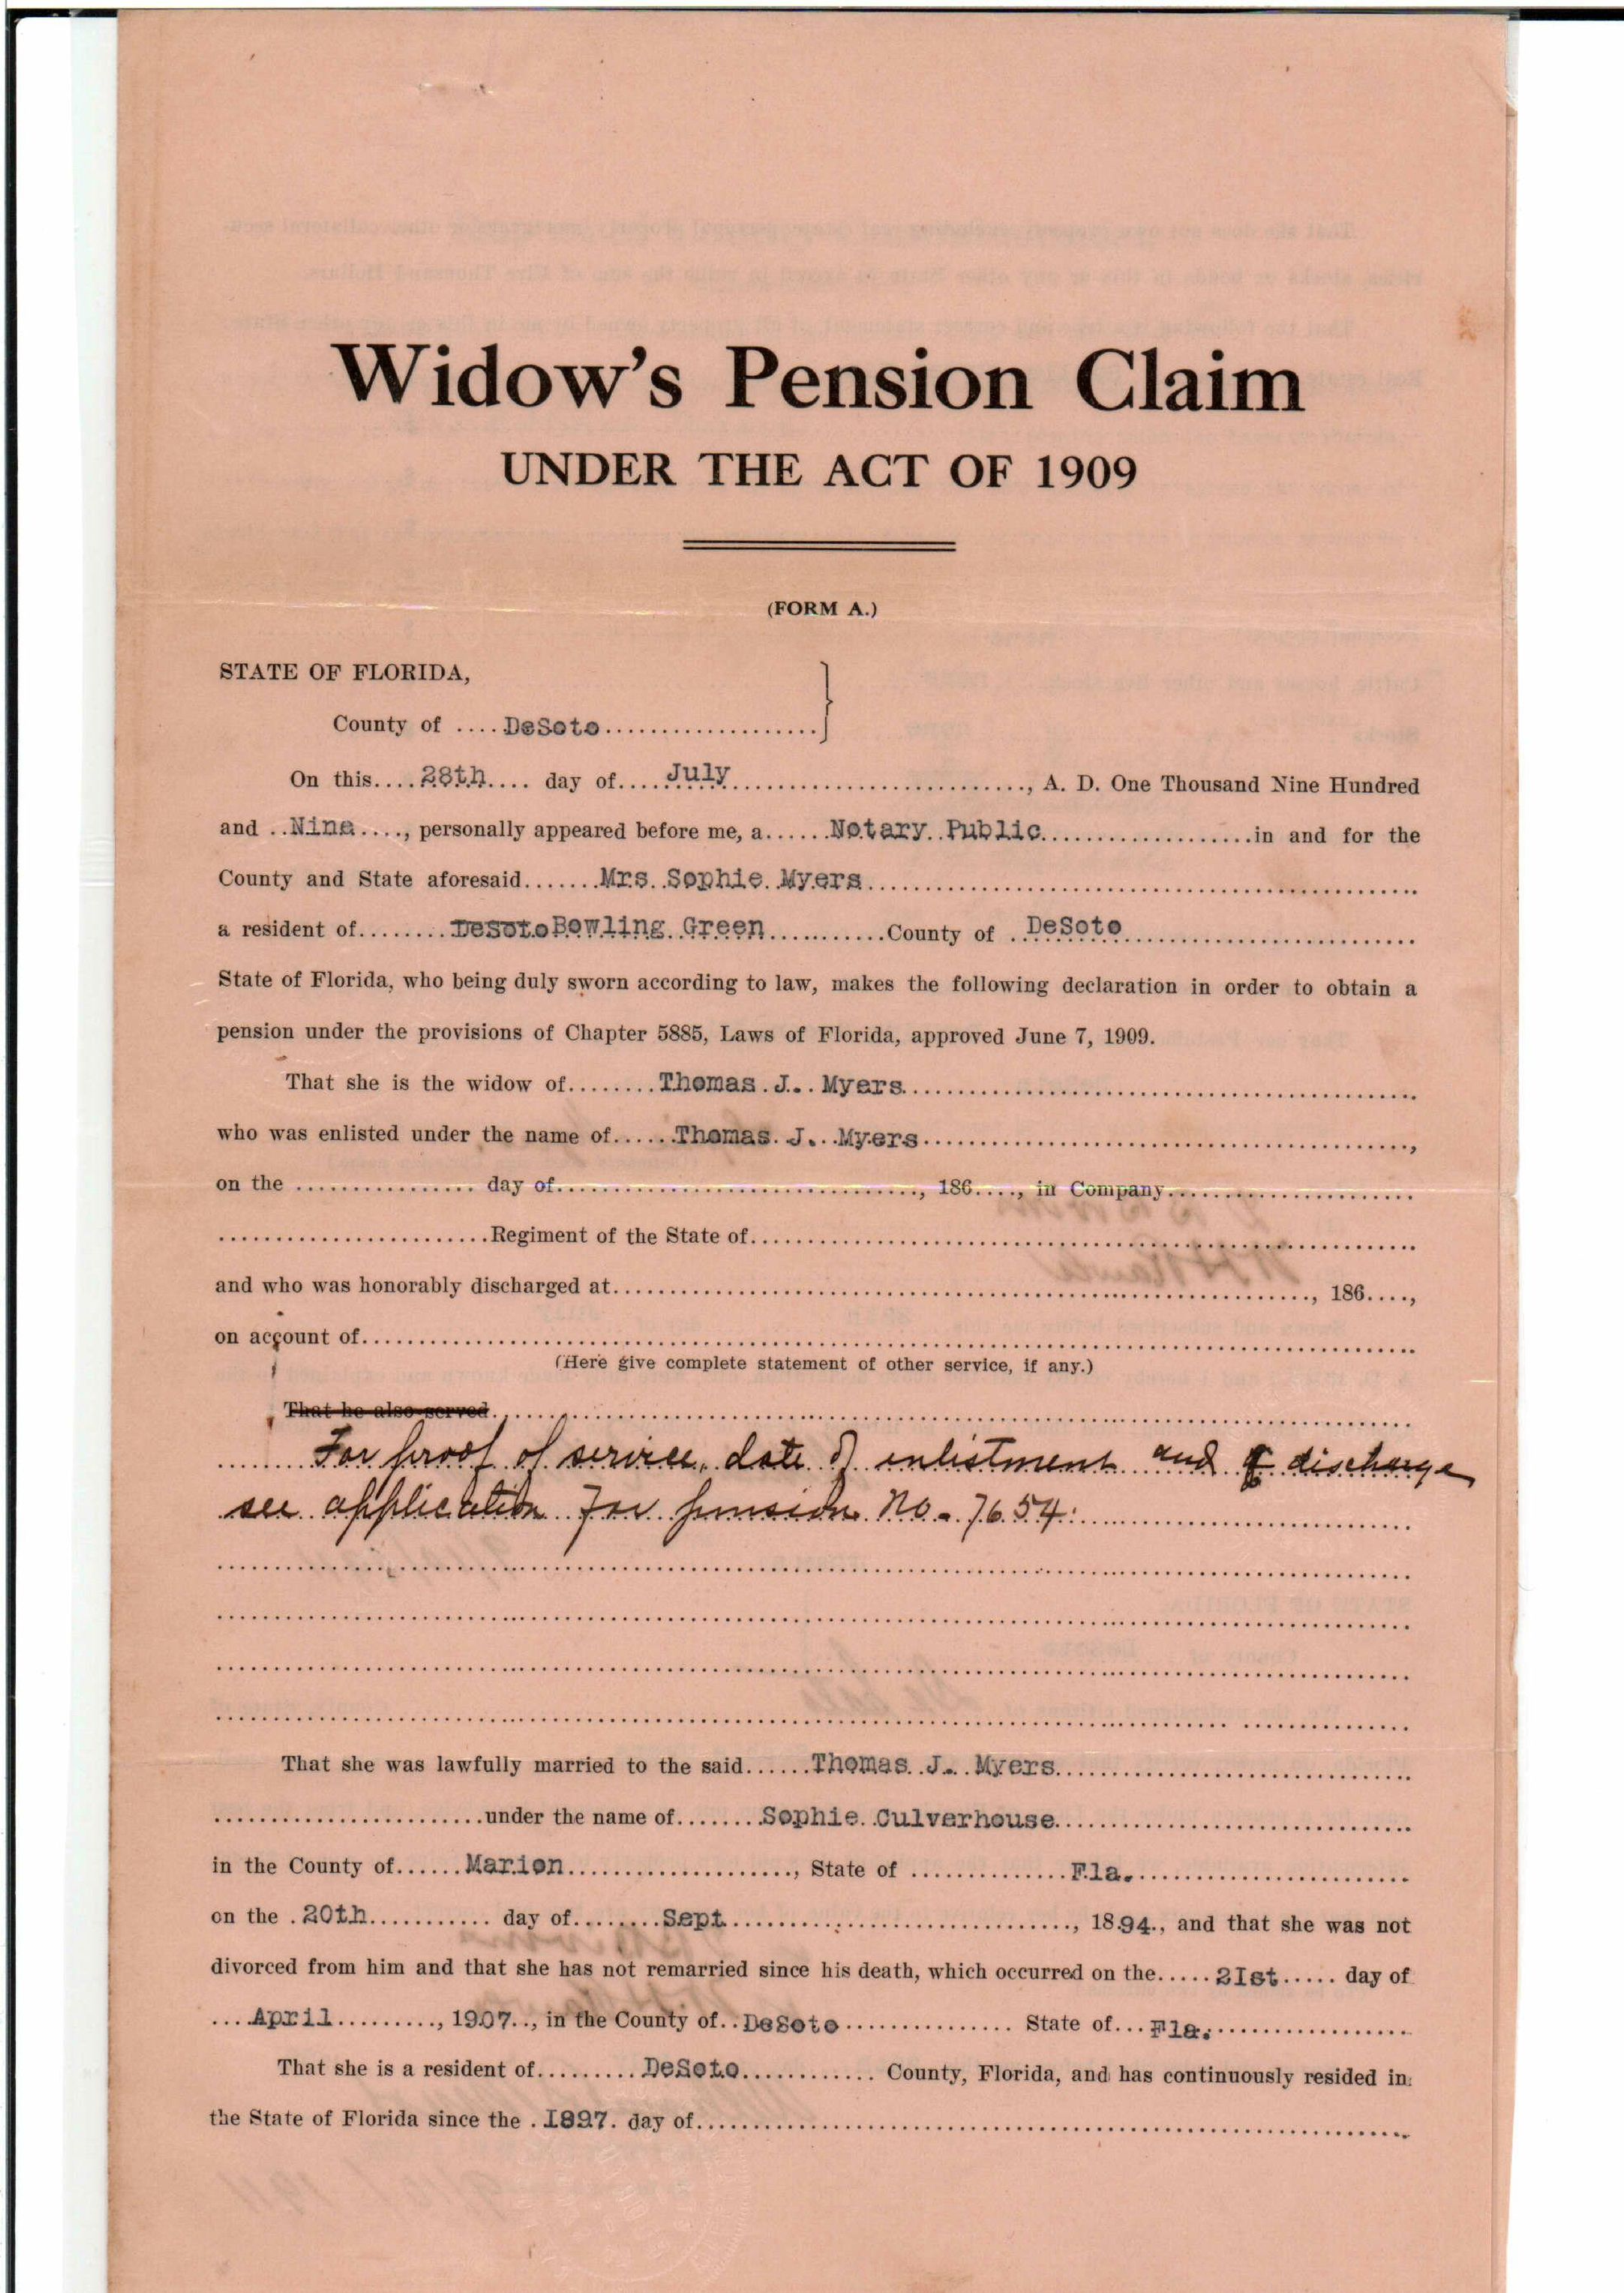 Widow's Pension Claim
UNDER THE ACT OF 1909
(FORM A.)
STATE OF FLORIDA,
County of ....DeSoto....................
On this....28th.... day of....July............................., A. D. One Thousand Nine Hundred
and ..Nine...., personally appeared before me, a......Notary Public....................in and for the
County and State aforesaid.......Mrs. Sophie Myers..................................................
a resident of........DeSoto Bowling Green............County of ..DeSoto..............................
State of Florida, who being duly sworn according to law, makes the following declaration in order to obtain a
pension under the provisions of Chapter 5885, Laws of Florida, approved June 7, 1909.
That she is the widow of........Thomas J. Myers..................................................
who was enlisted under the name of......Thomas J. Myers..............................................,
on the ................ day of................................, 186...., in Company......................
........................Regiment of the State of............................................................
and who was honorably discharged at.............................................................., 186....,
on account of..............................................................................................
(Here give complete statement of other service, if any.)
That he also served..................................................................................
For proof of service, date of enlistment and of discharge
see application for pension No. 7654.
That she was lawfully married to the said......Thomas J. Myers................................
........................under the name of........Sophie Culverhouse................................
in the County of......Marion...................., State of ..............Fla.........................
on the .20th........... day of........Sept..............................., 1894., and that she was not
divorced from him and that she has not remarried since his death, which occurred on the.....2Ist..... day of
....April........., 1907.., in the County of..DeSoto............... State of...Fla...................
That she is a resident of.........DeSoto............ County, Florida, and has continuously resided in
the State of Florida since the .I897. day of................................................................